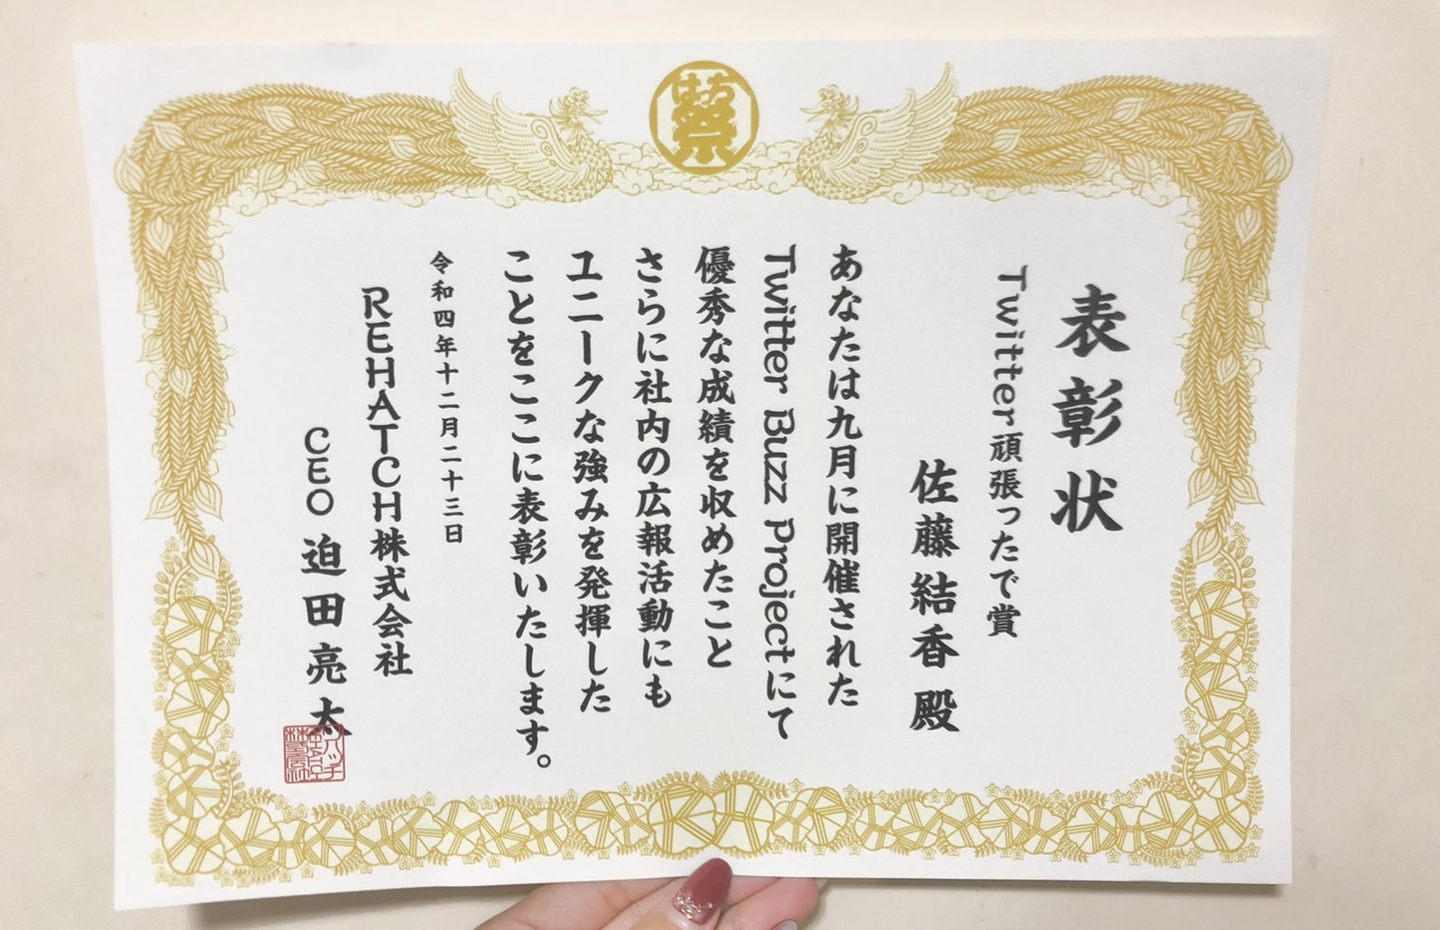 はち祭
表彰状
Twitter頑張ったで賞
佐藤結香殿
あなたは九月に開催された
Twitter Buzz Projectにて
優秀な成績を収めたこと
さらに社内の広報活動にも
ユニークな強みを発揮した
ことをここに表彰いたします。
令和四年十二月二十三日
REHATCH株式会社
CEO 迫田亮太